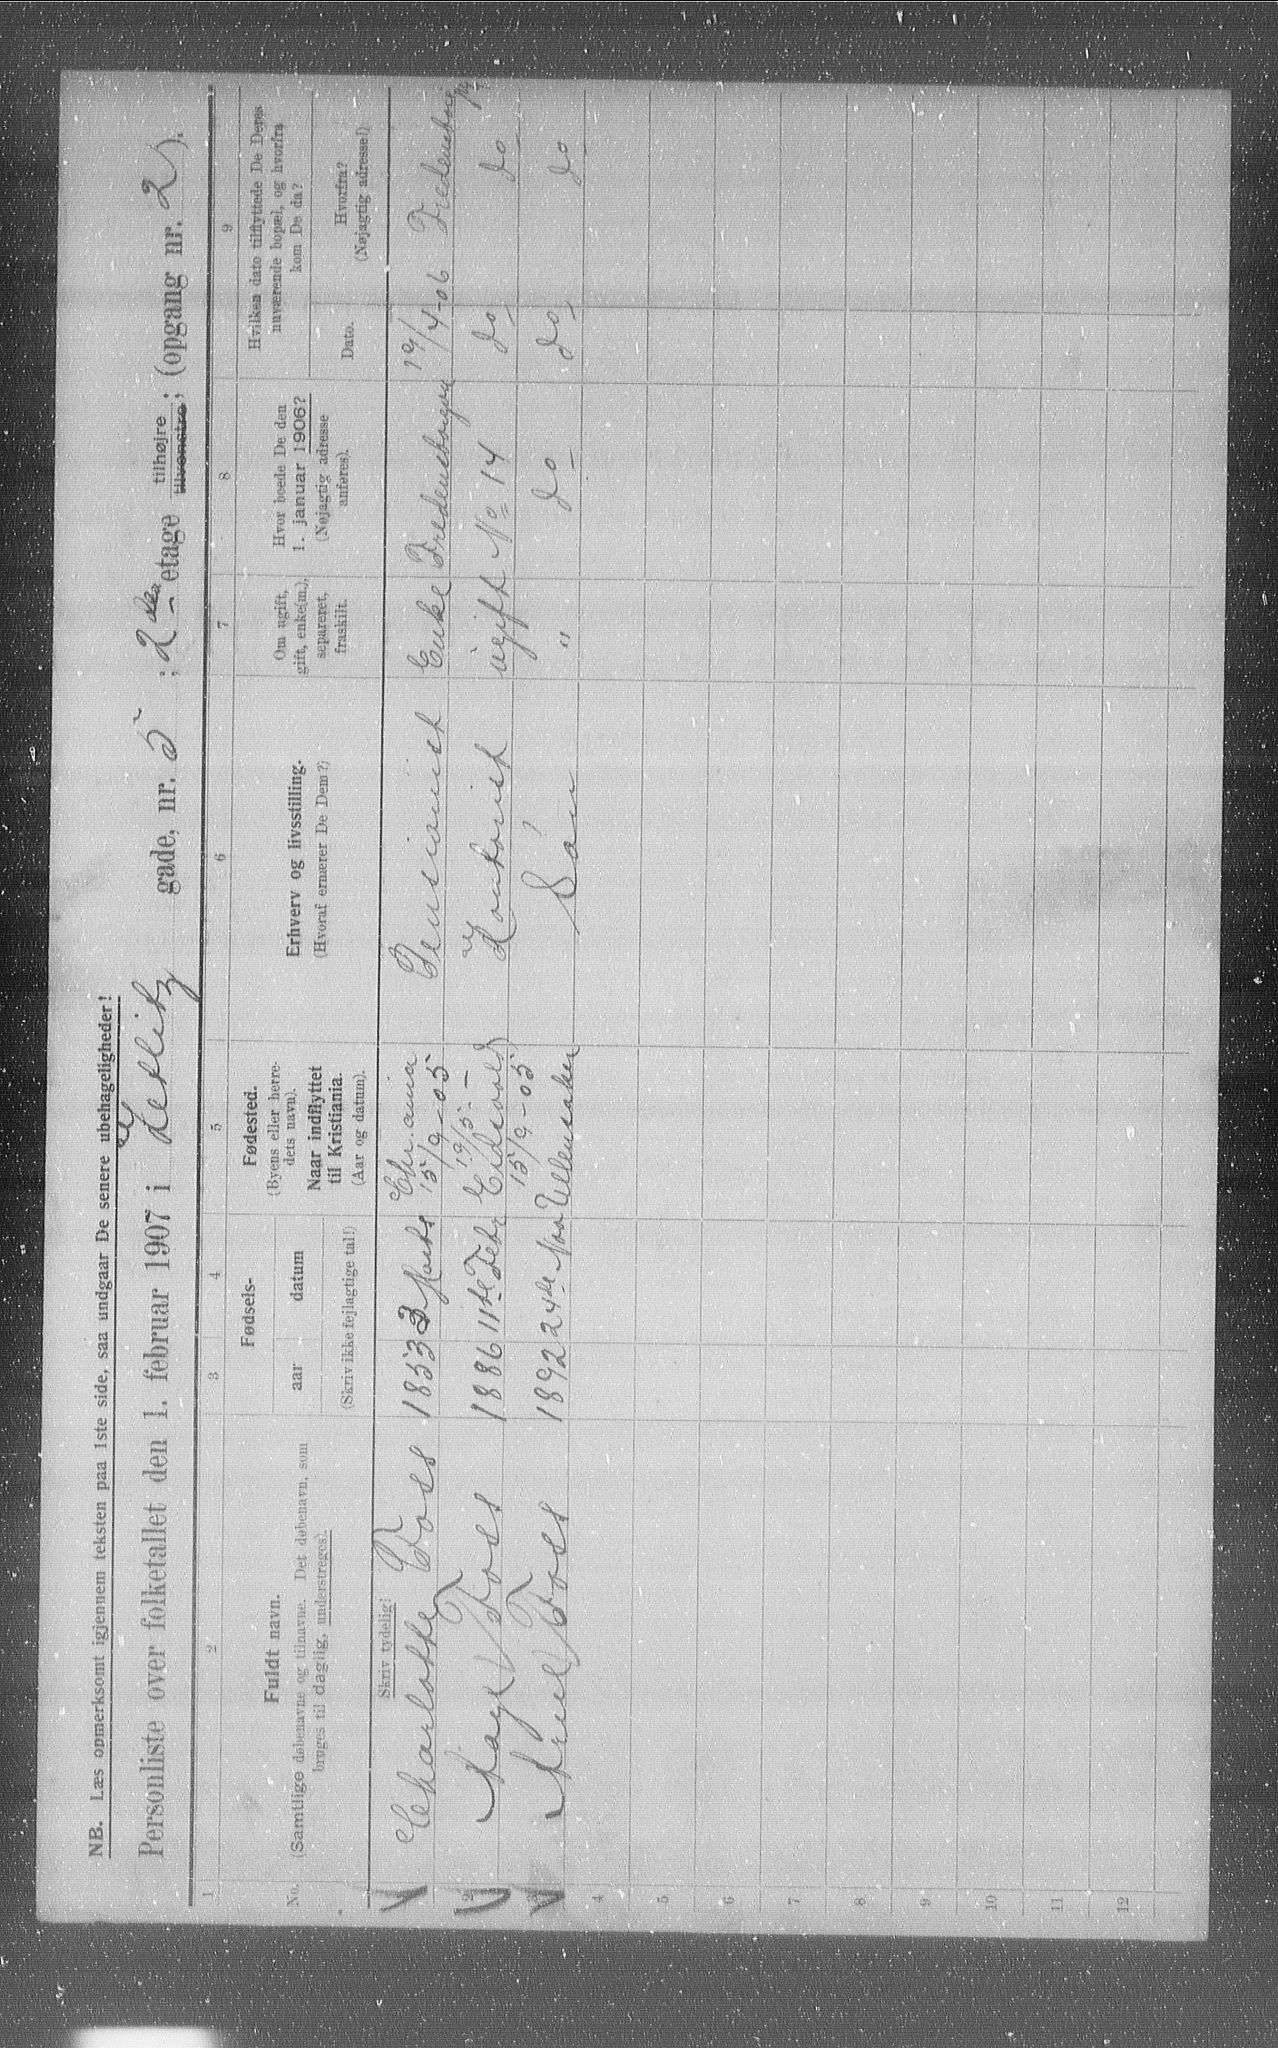 NB. Læs opmerksomt igjennem teksten paa 1ste side, saa undgaar De senere ubehageligheder!
Personliste over folketallet den 1. februar 1907 i Zetlitz gade, nr. 5 ; 2den etage tilhøjre tilvenstre; (opgang nr. 2).
1 2 3 4 5 6 7 8 9
No.
Fuldt navn.
(Samtlige døbenavne og tilnavne. Det døbenavn, som
bruges til daglig, understreges).
Skriv tydelig!
Fødsels-
aar
datum
(Skriv ikke fejlagtige tal!)
Fødested.
(Byens eller herre-
dets navn).
Naar indflyttet
til Kristiania.
(Aar og datum).
Erhverv og livsstilling.
(Hvoraf ernærer De Dem?)
Om ugift,
gift, enke(m.),
separeret,
fraskilt.
Hvor boede De den
1. januar 1906?
(Nøjagtig adresse
anføres).
Hvilken dato tilflyttede De Deres
nuværende bopæl, og hvorfra
kom De da?
Dato.
Hvorfra?
(Nøjagtig adresse!)
Charlotte Foss 1853 3 Marts Chr.ania 15/9-05 Pensionist Enke Fredensborgvei 19/4-06
2 Aage Foss 1886 11te Febr Eidsvold 15/9-05 Kontorist ugift No 14 do do
3 Foss 1892 24de Nov Ullensaker Søn " do do do
4
5
6
7
8
9
10
11
12